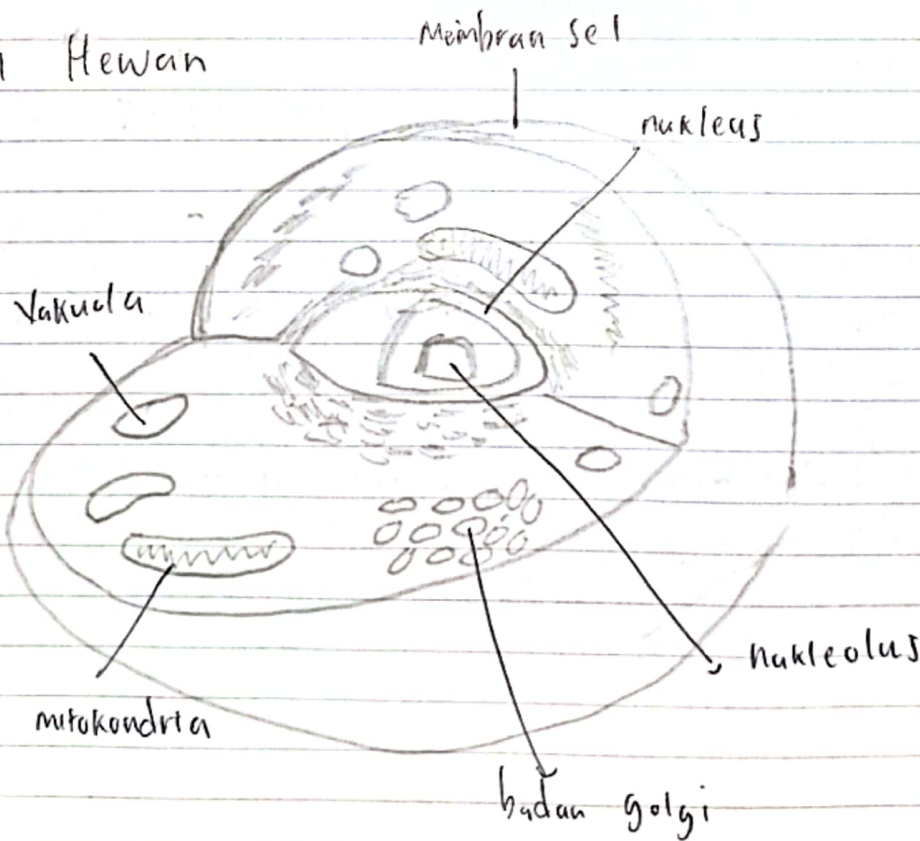 Hewan
Membran sel
nukleus
Vakuola
nukleolus
mitokondria
badan golgi